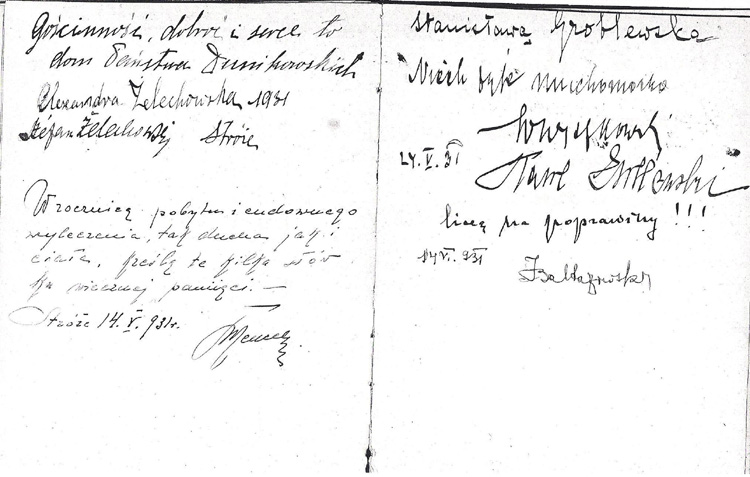 Gościnność, dobroć i serce to
dom Państwa Dunikowskich
Alexandra Żelechowska 1931
Stefan Żelechowski Stróże
W rocznicę pobytu i cudownego
wyleczenia, tak ducha jak i
ciała, kreślę te kilka słów
ku wiecznej pamięci. —
Stróże 14. V. 931 r.
Stanisława Groblewska
Niech żyje
24. V. 31
Paweł
liczę na poprawiny !!!
14 VI. 931